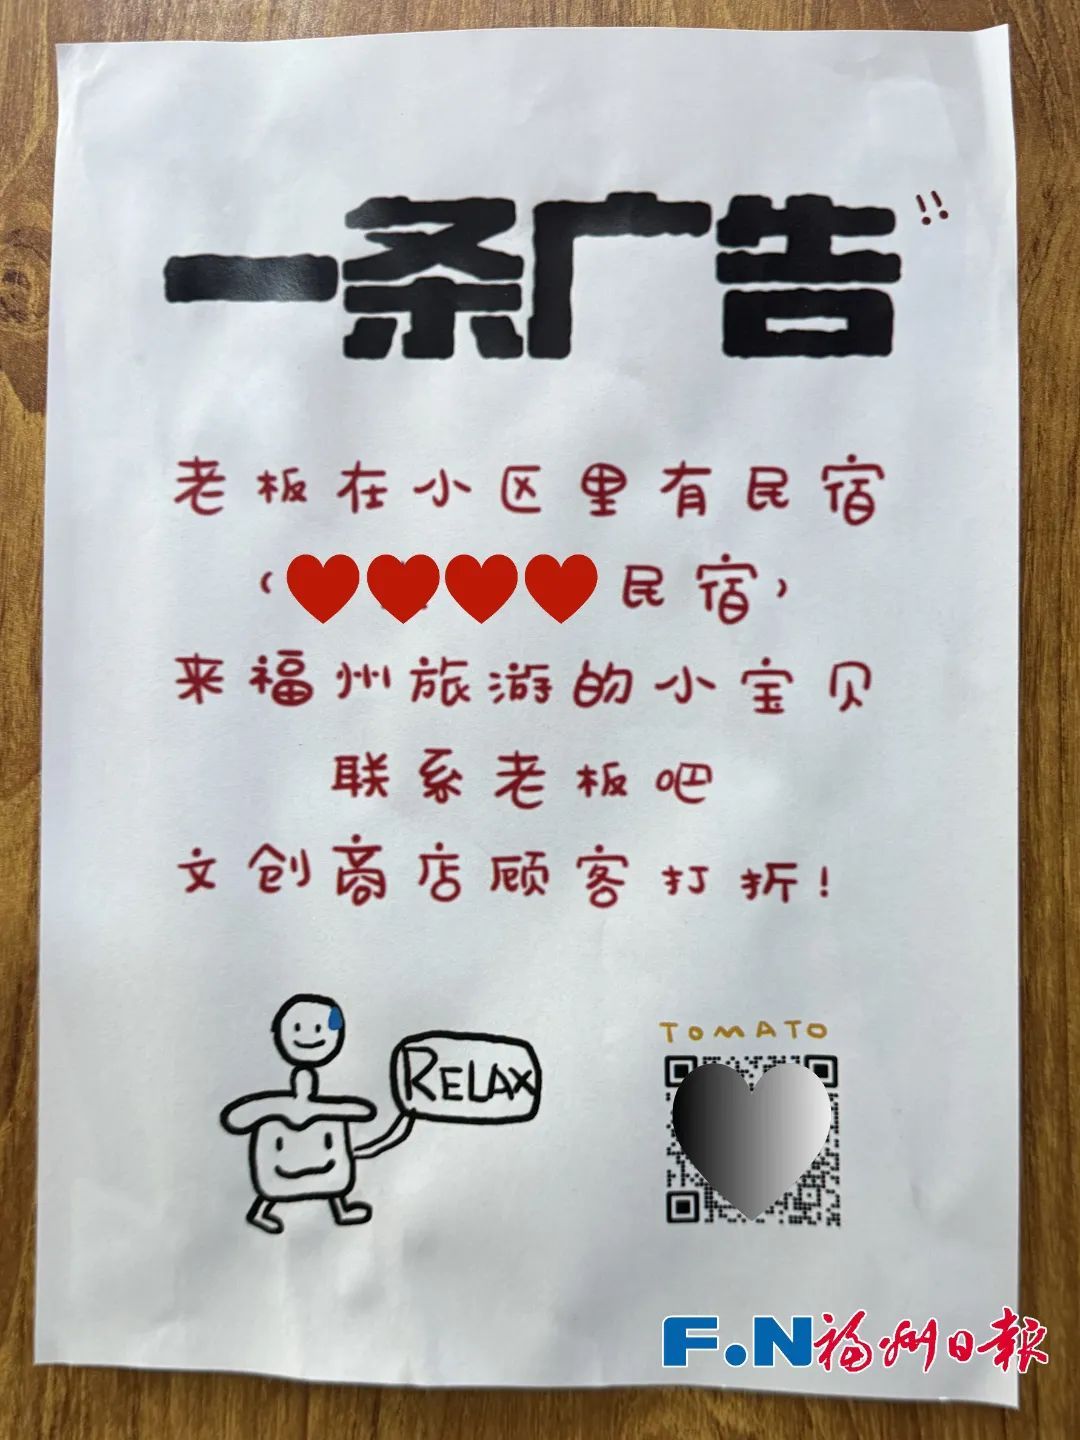 一条广告!!
老板在小区里有民宿
(民宿)
来福州旅游的小宝贝
联系老板吧
文创商店顾客打折!
RELAX
TOMATO
F.N福州日报